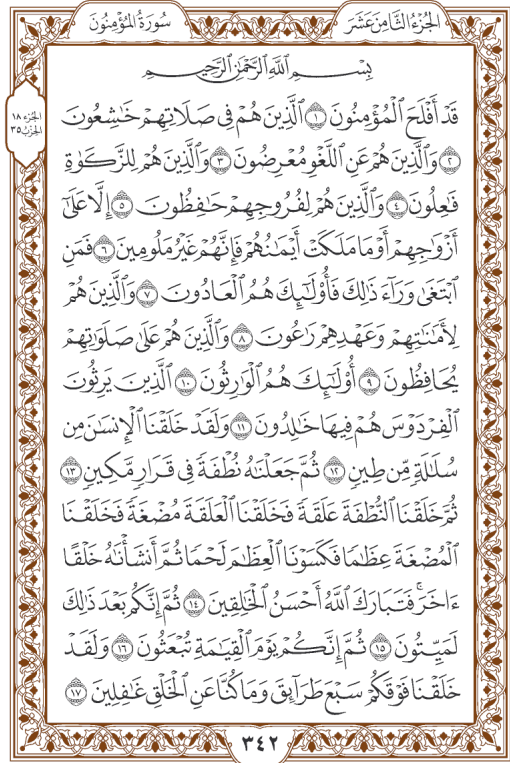 الجُزءُ الثَّامِنَ عَشَرَ
سُورَةُ المُؤْمِنُونَ
الجزء ١٨
الحزب ٣٥
بِسْمِ اللَّهِ الرَّحْمَٰنِ الرَّحِيمِ
قَدْ أَفْلَحَ الْمُؤْمِنُونَ ١ الَّذِينَ هُمْ فِي صَلَاتِهِمْ خَاشِعُونَ
٢ وَالَّذِينَ هُمْ عَنِ اللَّغْوِ مُعْرِضُونَ ٣ وَالَّذِينَ هُمْ لِلزَّكَوٰةِ
فَاعِلُونَ ٤ وَالَّذِينَ هُمْ لِفُرُوجِهِمْ حَافِظُونَ ٥ إِلَّا عَلَىٰ
أَزْوَاجِهِمْ أَوْ مَا مَلَكَتْ أَيْمَانُهُمْ فَإِنَّهُمْ غَيْرُ مَلُومِينَ ٦ فَمَنِ
ابْتَغَىٰ وَرَاءَ ذَٰلِكَ فَأُولَٰئِكَ هُمُ الْعَادُونَ ٧ وَالَّذِينَ هُمْ
لِأَمَانَاتِهِمْ وَعَهْدِهِمْ رَاعُونَ ٨ وَالَّذِينَ هُمْ عَلَىٰ صَلَوَاتِهِمْ
يُحَافِظُونَ ٩ أُولَٰئِكَ هُمُ الْوَارِثُونَ ١٠ الَّذِينَ يَرِثُونَ
الْفِرْدَوْسَ هُمْ فِيهَا خَالِدُونَ ١١ وَلَقَدْ خَلَقْنَا الْإِنسَانَ مِن
سُلَالَةٍ مِّن طِينٍ ١٢ ثُمَّ جَعَلْنَاهُ نُطْفَةً فِي قَرَارٍ مَّكِينٍ ١٣
ثُمَّ خَلَقْنَا النُّطْفَةَ عَلَقَةً فَخَلَقْنَا الْعَلَقَةَ مُضْغَةً فَخَلَقْنَا
الْمُضْغَةَ عِظَامًا فَكَسَوْنَا الْعِظَامَ لَحْمًا ثُمَّ أَنشَأْنَاهُ خَلْقًا
ءَاخَرَ ۚ فَتَبَارَكَ اللَّهُ أَحْسَنُ الْخَالِقِينَ ١٤ ثُمَّ إِنَّكُم بَعْدَ ذَٰلِكَ
لَمَيِّتُونَ ١٥ ثُمَّ إِنَّكُمْ يَوْمَ الْقِيَامَةِ تُبْعَثُونَ ١٦ وَلَقَدْ
خَلَقْنَا فَوْقَكُمْ سَبْعَ طَرَائِقَ وَمَا كُنَّا عَنِ الْخَلْقِ غَافِلِينَ ١٧
٣٤٢